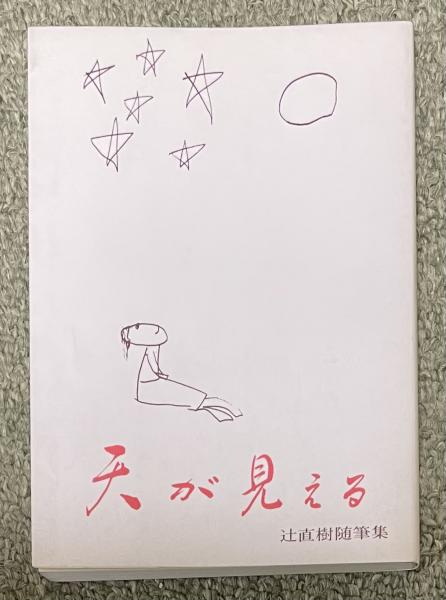 天が見える
辻直樹随筆集